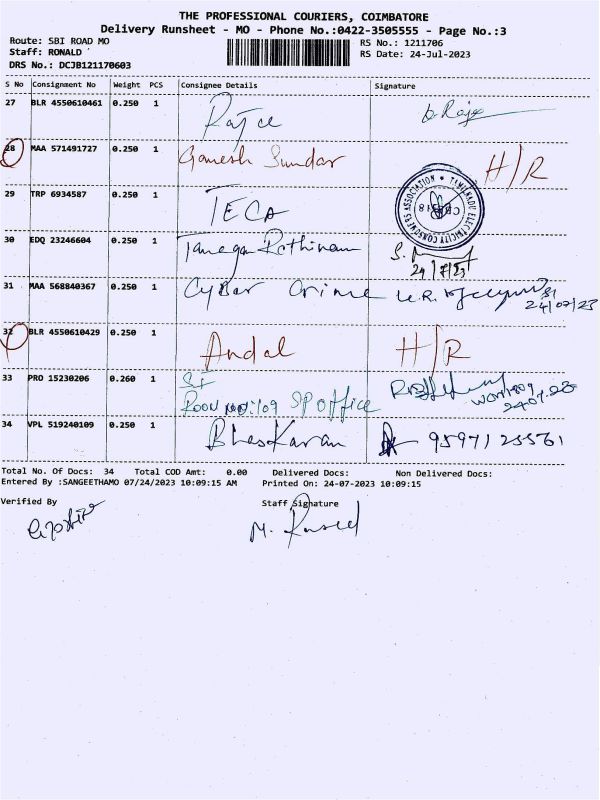 THE PROFESSIONAL COURIERS, COIMBATORE
Delivery Runsheet - MO - Phone No.:0422-3505555 - Page No.:3
Route: SBI ROAD MO
RS No.: 1211706
Staff: RONALD
RS Date: 24-Jul-2023
DRS No.: DCJB121170603
S No Consignment No Weight PCS Consignee Details Signature
27 BLR 4550610461 0.250 1
28 MAA 571491727 0.250 1 Ganesh Sundar H/R
29 TRP 6934587 0.250 1 TECA
TAMILNADU ELECTRICITY CONSUMERS ASSOCIATION
30 EDQ 23246604 0.250 1 Rathinam
24/7/23
31 MAA 568840367 0.250 1 CyBar Crime
24/07/23
32 BLR 4550610429 0.250 1 Andal H/R
33 PRO 15230206 0.260 1
SP Office
34 VPL 519240109 0.250 1 Bhaskaran
Total No. Of Docs: 34 Total COD Amt: 0.00 Delivered Docs: Non Delivered Docs:
Entered By :SANGEETHAMO 07/24/2023 10:09:15 AM Printed On: 24-07-2023 10:09:15
Verified By Staff Signature